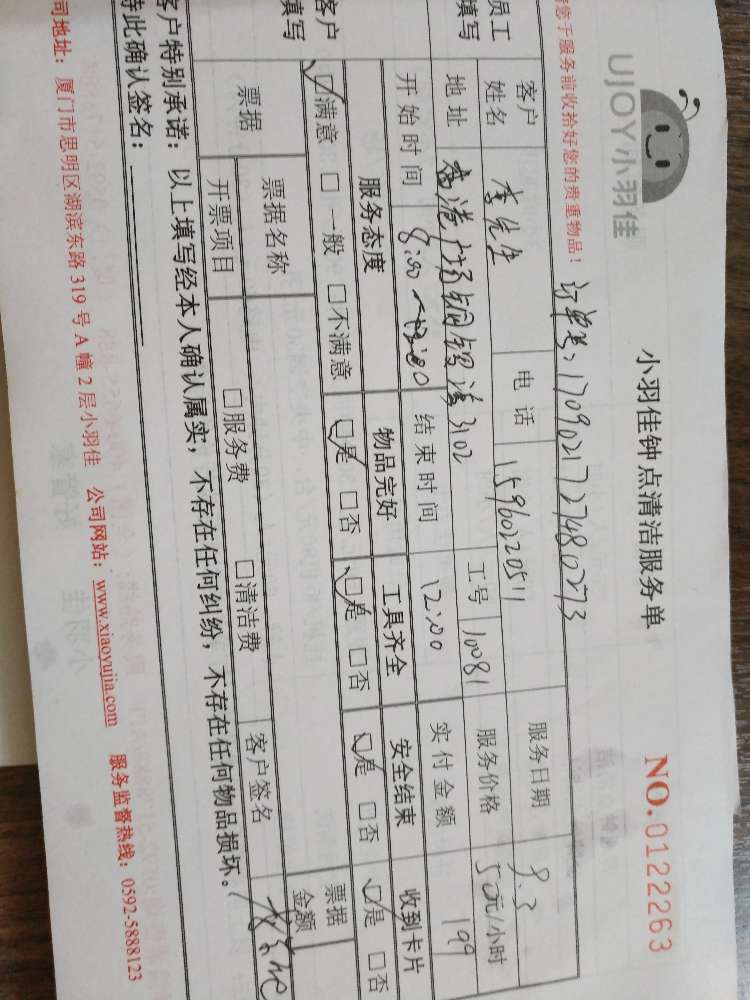 UJOY小羽佳
小羽佳钟点清洁服务单
NO.0122263
您于服务前收拾好您的贵重物品！
订单号：1709021727480273
员工
填写
客户
姓名
李先生
电话
15960220511
服务日期
9.3
地址
3102
工号
10081
服务价格
5元/小时
开始时间
8:00
结束时间
12:00
实付金额
199
客户
填写
服务态度
物品完好
工具齐全
安全结束
收到卡片
☑满意 □一般 □不满意
☑是 □否
☑是 □否
☑是 □否
☑是 □否
票据
票据名称
票据
金额
开票项目
□服务费
□清洁费
客户签名
客户特别承诺：以上填写经本人确认属实，不存在任何纠纷，不存在任何物品损坏。
特此确认签名：
司地址：厦门市思明区湖滨东路 319 号 A 幢 2 层小羽佳 公司网站：www.xiaoyujia.com 服务监督热线：0592-5888123